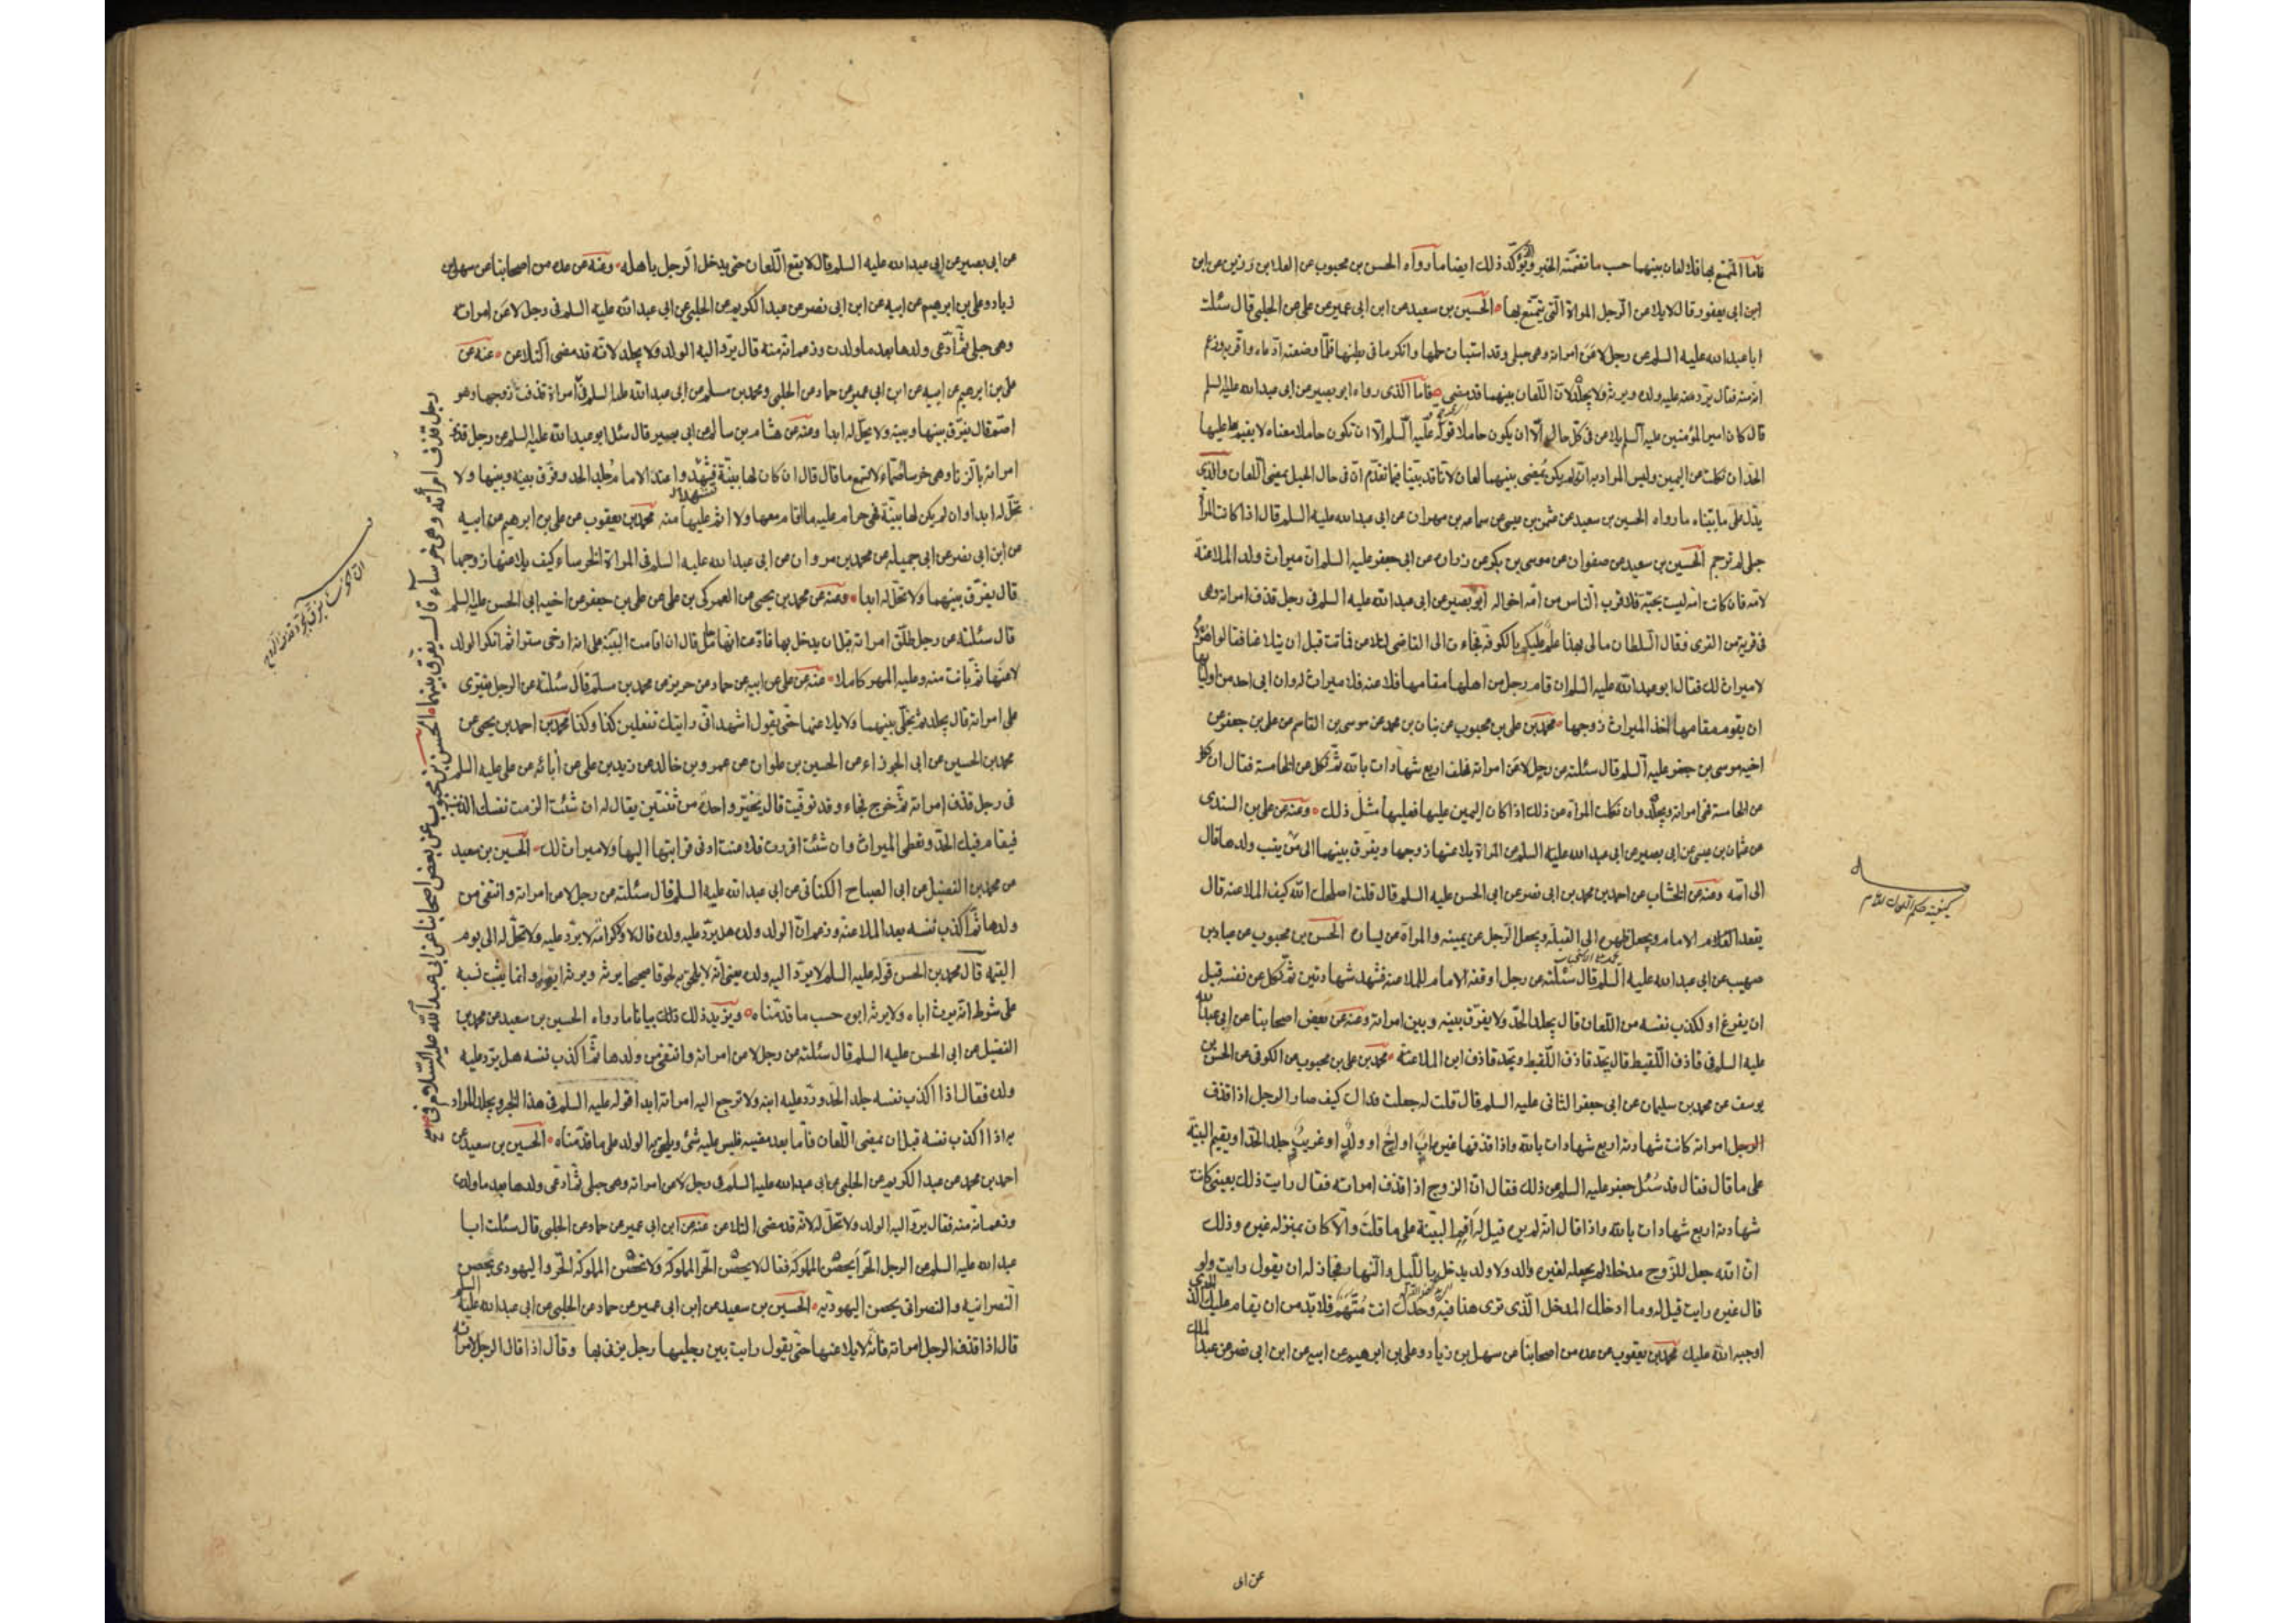 فاما المتمتع بها فلا لعان بينهما حسب ما تضمنه الخبر ويؤكد ذلك ايضا ما رواه الحسن بن محبوب عن العلا بن رزين عن ابن
ابن ابى يعفور قال لا يلاعن الرجل المراة التى يتمتع بها الحسين بن سعيد عن ابن ابى عمير عن على عن الحلبى قال سئلت
ابا عبد الله عليه السلم عن رجل لاعن امراته وهى حبلى وقد استبان حملها وانكر ما فى بطنها فلما وضعته ادعاه واقر به وزعم
انه منه فقال يرد عليه ولده ويرثه ولا يجلد لان اللعان بينهما قد مضى فاما الذى رواه ابو بصير عن ابى عبد الله عليه السلم
قال كان امير المؤمنين عليه السلم يلاعن فى كل حال الا ان يكون حاملا قوله عليه السلم الا ان تكون حاملا معناه لا يقيم عليها
الحد ان نكلت عن اليمين وليس المراد به انه لم يكن يمضى بينهما لعان لانا قد بينا فيما تقدم ان فى حال الحبل يمضى اللعان والذى
يدل على ما بيناه ما رواه الحسين بن سعيد عن عثمن بن عيسى عن سماعه بن مهران عن ابى عبد الله عليه السلم قال اذا كانت المراة
حبلى لم ترجم الحسين بن سعيد عن صفوان عن موسى بن بكر عن زراره عن ابى جعفر عليه السلم ان ميراث ولد الملاعنة
لامه فان كانت امه ليست بحية فلاقرب الناس من امه اخواله ابو بصير عن ابى عبد الله عليه السلم فى رجل قذف امراته وهى
فى قرية من القرى فقال السلطان مالى بهذا علم عليكم بالكوفة فجاءت الى القاضى لتلاعن فماتت قبل ان يتلاعنا فقالوا هؤلاء
لا ميراث لك فقال ابو عبد الله عليه السلم ان قام رجل من اهلها مقامها فلاعنه فلا ميراث له وان ابى احد من اوليائها
ان يقوم مقامها اخذ الميراث زوجها محمد بن على بن محبوب عن بنان بن محمد عن موسى بن القاسم عن على بن جعفر عن
اخيه موسى بن جعفر عليه السلم قال سئلته عن رجل لاعن امراته فحلف اربع شهادات بالله ثم نكل عن الخامسة فقال ان نكل
عن الخامسة فهى امراته ويجلد وان نكلت المراة عن ذلك اذا كان اليمين عليها فعليها مثل ذلك ومنه عن على بن السندى
عن عثمان بن عيسى عن ابى بصير عن ابى عبد الله عليه السلم عن المراة يلاعنها زوجها ويفرق بينهما الى من ينسب ولدها قال
الى امه ومنه عن الخشاب عن احمد بن محمد بن ابى نصر عن ابى الحسن عليه السلم قال قلت اصلحك الله كيف الملاعنة قال
يقعد الامام ويجعل ظهره الى القبلة ويجعل الرجل عن يمينه والمراة عن يساره الحسن بن محبوب عن عباد بن
صهيب عن ابى عبد الله عليه السلم قال سئلته عن رجل اوقفه الامام للملاعنة فشهد شهادتين ثم نكل عن نفسه قبل
ان يفرغ او لكذب نفسه من اللعان قال يجلد الحد ولا يفرق بينه وبين امراته ومنه عن بعض اصحابنا عن ابى عبد الله
عليه السلم فى قاذف اللقيط قال يحد قاذف اللقيط ويحد قاذف ابن الملاعنة محمد بن على بن محبوب عن الكوفى عن الحسن بن
يوسف عن محمد بن سليمان عن ابى جعفر الثانى عليه السلم قال قلت له جعلت فداك كيف صار الرجل اذا قذف
الرجل امراته كانت شهادته اربع شهادات بالله واذا قذفها غيره اب او اخ او ولد او غريب جلد الحد او يقيم البينة
على ما قال فقال قد سئل جعفر عليه السلم عن ذلك فقال ان الزوج اذا قذف امراته فقال رايت ذلك بعينى كانت
شهادته اربع شهادات بالله واذا قال انه لم يره قيل له اقم البينة على ما قلت والا كان بمنزلة غيره وذلك
ان الله جعل للزوج مدخلا لم يجعله لغيره والد ولا ولد يدخل بالليل والنهار فجاز له ان يقول رايت ولو
قال غيره رايت قيل له وما ادخلك المدخل الذى ترى هذا فيه وحدك انت متهم فلا بد من ان يقام عليك الحد الذى
اوجبه الله عليك محمد بن يعقوب عن عده من اصحابنا عن سهل بن زياد وعلى بن ابرهيم عن ابيه عن ابن ابى نصر عن عبد الملك
كيفية حكم اللعان
عن ابى
عن ابى بصير عن ابى عبد الله عليه السلم قال لا يقع اللعان حتى يدخل الرجل باهله ومنه عن عده من اصحابنا عن سهل بن
زياد وعلى بن ابرهيم عن ابيه عن ابن ابى نصر عن عبد الكريم عن الحلبى عن ابى عبد الله عليه السلم فى رجل لاعن امراته
وهى حبلى ثم ادعى ولدها بعد ما ولدت وزعم انه منه قال يرد اليه الولد ولا يجلد لانه قد مضى التلاعن عنه عن
على بن ابرهيم عن ابيه عن ابن ابى عمير عن حماد عن الحلبى ومحمد بن مسلم عن ابى عبد الله عليه السلم فى امراة قذفت زوجها وهو
اصم قال يفرق بينها وبينه ولا يحل له ابدا ومنه عن هشام بن سالم عن ابى بصير قال سئل ابو عبد الله عليه السلم عن رجل قذف
امراته بالزنا وهى خرساء صماء لا تسمع ما قال قال ان كان لها بينة فشهدوا عند الامام جلد الحد وفرق بينه وبينها ولا
تحل له ابدا وان لم يكن لها بينة فهى حرام عليه ما اقام معها ولا اثم عليها منه محمد بن يعقوب عن على بن ابرهيم عن ابيه
عن ابن ابى نصر عن ابى جميله عن محمد بن مروان عن ابى عبد الله عليه السلم فى المراة الخرساء كيف يلاعنها زوجها
قال يفرق بينهما ولا تحل له ابدا ومنه عن محمد بن يحيى عن العمركى بن على عن على بن جعفر عن اخيه ابى الحسن عليه السلم
قال سئلته عن رجل طلق امراته قبل ان يدخل بها فادعت انها حامل قال ان اقامت البينة على انه ارخى سترا ثم انكر الولد
لاعنها ثم بانت منه وعليه المهر كاملا عنه عن على عن ابيه عن حماد عن حريز عن محمد بن مسلم قال سئلته عن الرجل يفترى
على امراته قال يجلد ثم يخلى بينهما ولا يلاعنها حتى يقول اشهد انى رايتك تفعلين كذا وكذا محمد بن احمد بن يحيى عن
محمد بن الحسين عن ابى الجوزاء عن الحسين بن علوان عن عمرو بن خالد عن زيد بن على عن ابائه عن على عليه السلم
فى رجل قذف امراته ثم خرج فجاء وقد توفيت قال يخير واحدة من ثنتين يقال له ان شئت الزمت نفسك الذنب
فيقام فيك الحد وتعطى الميراث وان شئت اقررت فلاعنت ادنى قرابتها اليها ولا ميراث لك الحسين بن سعيد
عن محمد بن الفضيل عن ابى الصباح الكنانى عن ابى عبد الله عليه السلم قال سئلته عن رجل لاعن امراته وانتفى من
ولدها ثم اكذب نفسه بعد الملاعنة وزعم ان الولد ولده هل يرد عليه ولده قال لا ولا كرامة لا يرد عليه ولا تحل له الى يوم
القيمة قال محمد بن الحسن قوله عليه السلم لا يرد اليه ولده يعنى انه لا يلحق به لحوقا صحيحا يرثه ويرث ابيه وانما يثبت نسبه
على شرط انه يرث اباه ولا يرثه ابوه حسب ما قدمناه ويزيد ذلك بيانا ما رواه الحسين بن سعيد عن محمد بن
الفضيل عن ابى الحسن عليه السلم قال سئلته عن رجل لاعن امراته وانتفى من ولدها ثم اكذب نفسه هل يرد عليه
ولده فقال اذا اكذب نفسه جلد الحد ورد عليه ابنه ولا ترجع اليه امراته ابدا قوله عليه السلم فى هذا الخبر ويجلد المراد
به اذا اكذب نفسه قبل ان يمضى اللعان فاما بعد مضيه فليس عليه شئ ويلحق به الولد على ما قدمناه الحسين بن سعيد عن
احمد بن محمد عن عبد الكريم عن الحلبى عن ابى عبد الله عليه السلم فى رجل لاعن امراته وهى حبلى ثم ادعى ولدها بعد ما ولدت
وزعم انه منه فقال يرد اليه الولد ولا تحل له لانه قد مضى التلاعن عنه عن ابن ابى عمير عن حماد عن الحلبى قال سئلت ابا
عبد الله عليه السلم عن الرجل الحر ايحصن المملوكة فقال لا يحصن الحر المملوكة ولا تحصن المملوكة الحر واليهودى يحصن
النصرانيه والنصرانى يحصن اليهوديه الحسين بن سعيد عن ابن ابى عمير عن حماد عن الحلبى عن ابى عبد الله عليه السلم
قال اذا قذف الرجل امراته فانه لا يلاعنها حتى يقول رايت بين رجليها رجل يزنى بها وقال اذا قال الرجل لامراته
رجل قذف امرأته وهى خرساء قال يفرق بينهما الحسن بن محبوب عن بعض اصحابنا عن ابى عبد الله عليه السلام فى